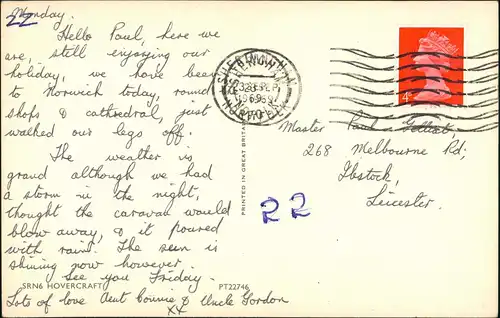 Monday.
22
Hello Paul, here we
are, still enjoying our
holiday, we have been
to Norwich today, round
shops & cathedral, just
walked our legs off.
The weather is
grand although we had
a storm in the night,
thought the caravan would
blow away, & it poured
with rain. The sun is
shining now however.
See you Friday.
Lots of love Aunt Connie & Uncle Gordon
xx
SRN6 HOVERCRAFT
PT22746
PRINTED IN GREAT BRITAIN
SHERINGHAM
SEP
1969
NORFOLK
Master Paul
268 Melbourne Rd;
Ibstock,
Leicester.
22